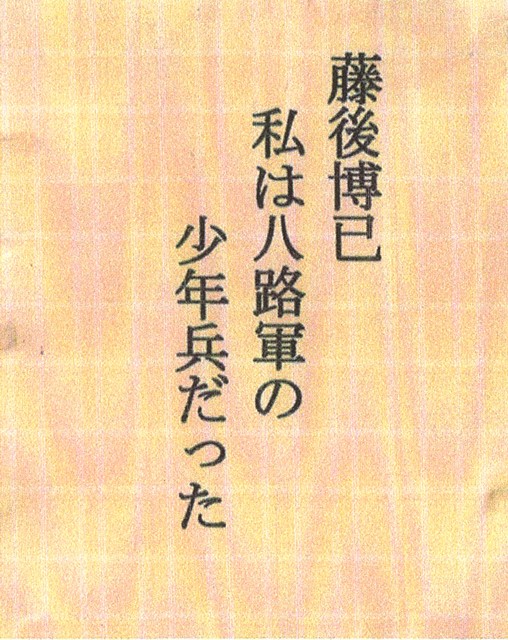 藤後博巳
私は八路軍の
少年兵だった